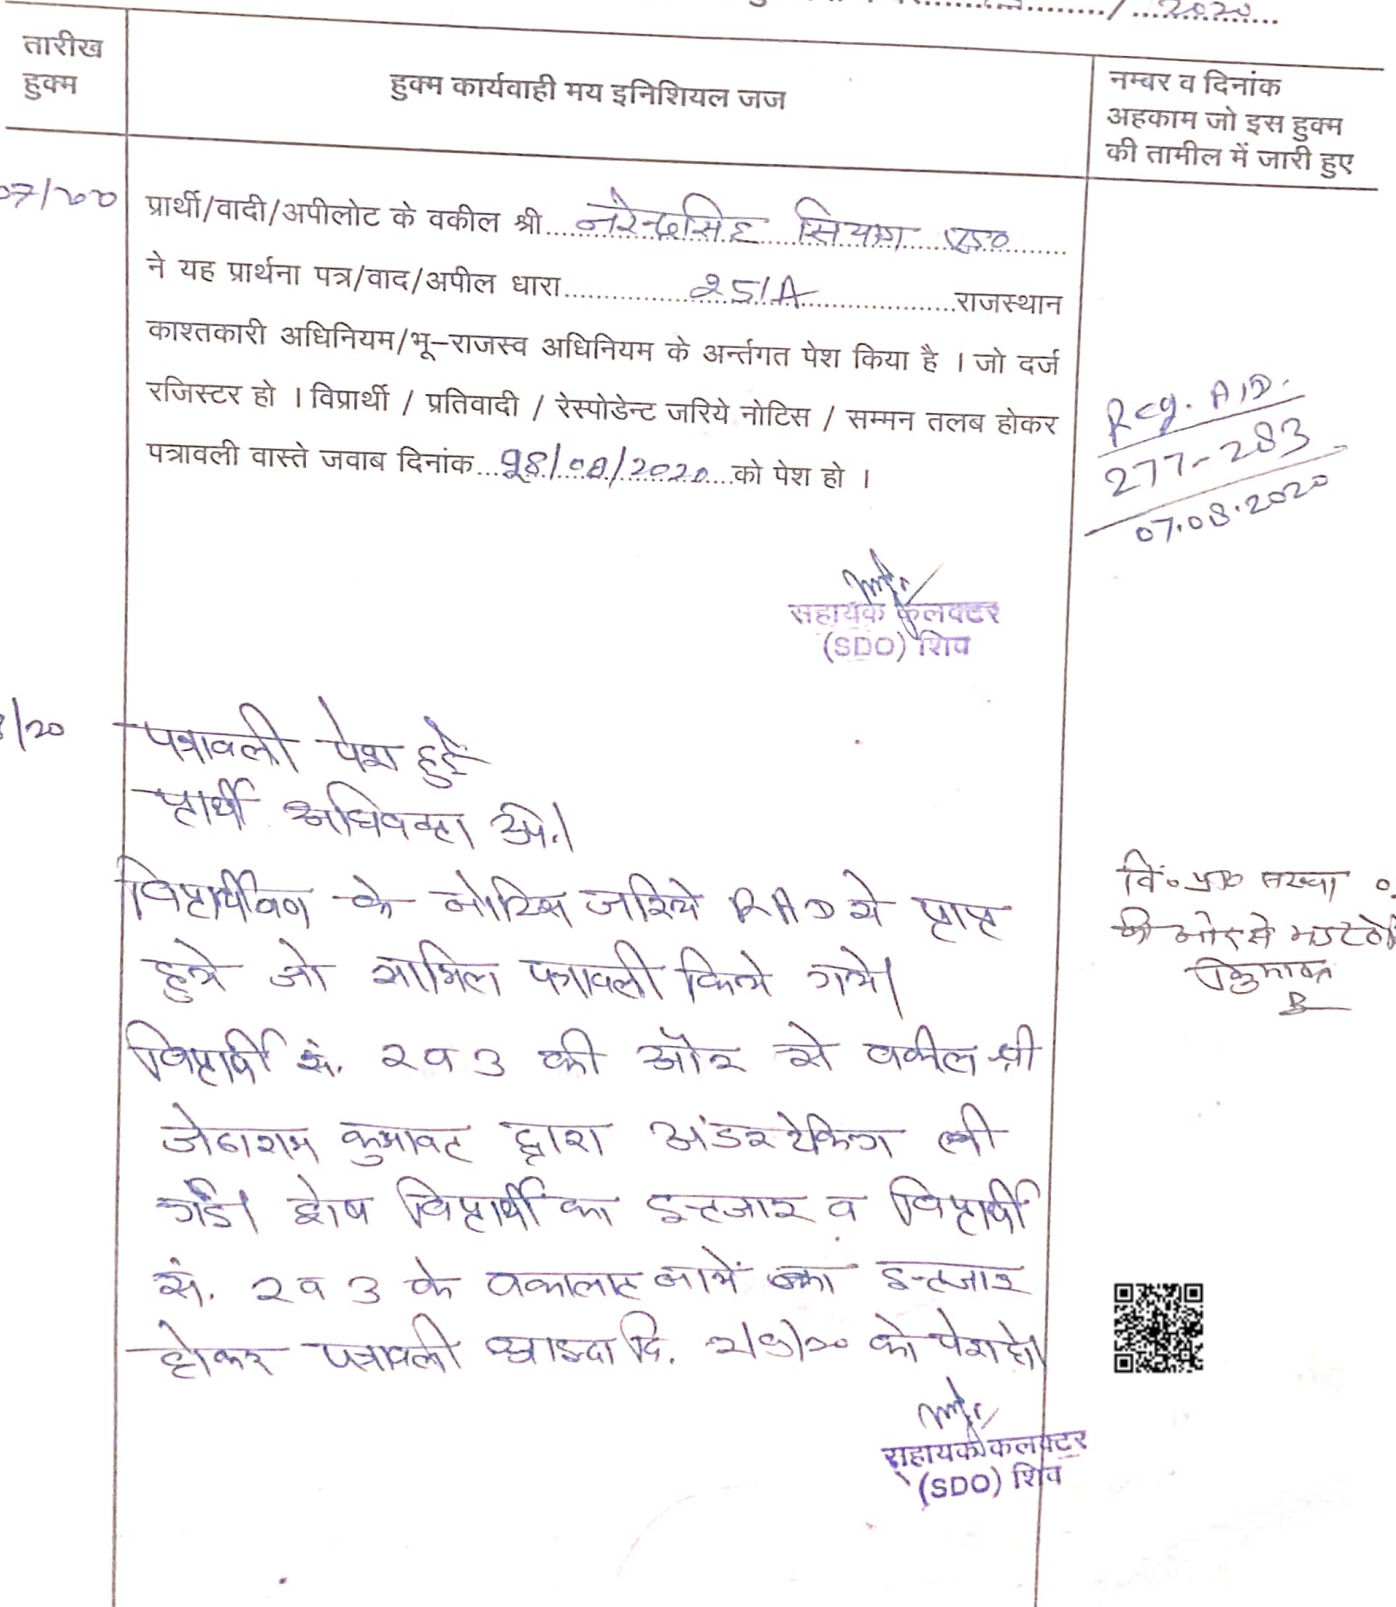 2020
तारीख
हुक्म
हुक्म कार्यवाही मय इनिशियल जज
नम्बर व दिनांक
अहकाम जो इस हुक्म
की तामील में जारी हुए
07/2020
प्रार्थी/वादी/अपीलोट के वकील श्री नरेन्द्रसिंह सियाग एड०
ने यह प्रार्थना पत्र/वाद/अपील धारा 251A राजस्थान
काश्तकारी अधिनियम/भू-राजस्व अधिनियम के अर्न्तगत पेश किया है । जो दर्ज
रजिस्टर हो । विप्रार्थी / प्रतिवादी / रेस्पोडेन्ट जरिये नोटिस / सम्मन तलब होकर
पत्रावली वास्ते जवाब दिनांक /08/2020 को पेश हो ।
Reg. A/D.
277-283
07.08.2020
सहायक कलक्टर
(SDO) शिव
/20
पत्रावली पेश हुई
प्रार्थी अधिवक्ता उप.।
विप्रार्थीगण के नोटिस जरिये RAD से प्राप्त
हुये जो सामिल पत्रावली किये गये।
विप्रार्थी सं. 2 व 3 की ओर से वकील श्री
जेठाराम कुमावट द्वारा अंडरटेकिंग ली
गई। शेष विप्रार्थी का इन्तजार व विप्रार्थी
सं. 2 व 3 के वकालात नामें का इन्तजार
होकर पत्रावली आइन्दा दि. 2/9/20 को पेश हो।
वि० प्रा० संख्या
की ओर से
सहायक कलक्टर
(SDO) शिव